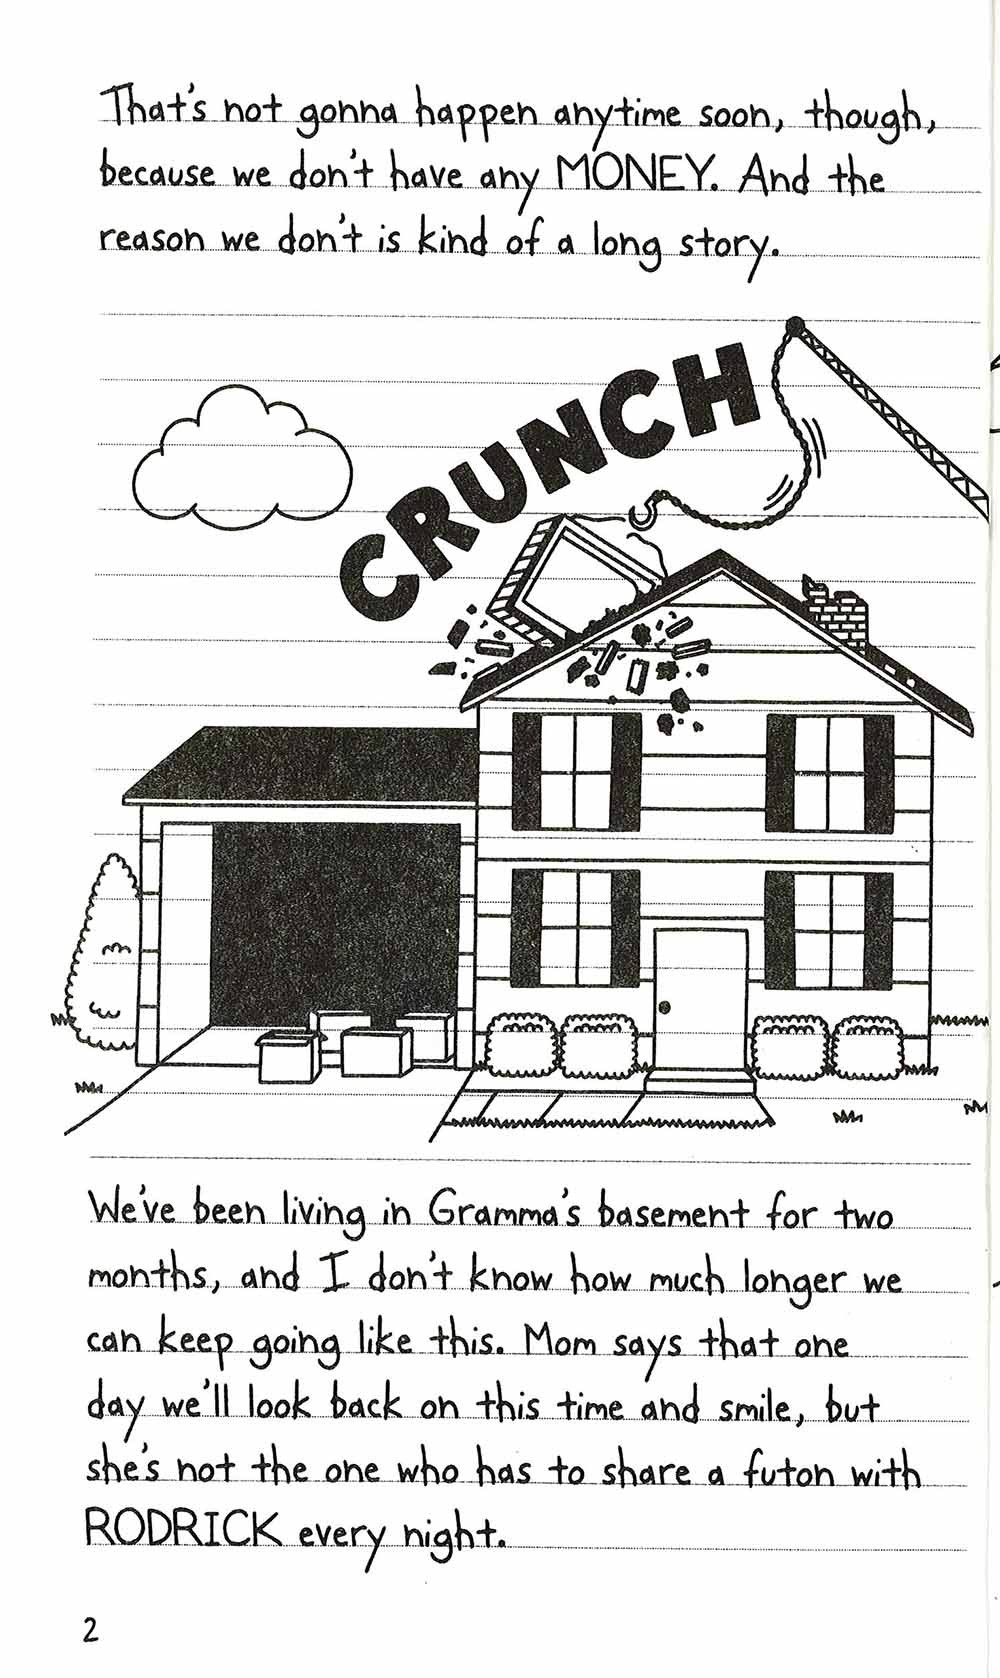 That's not gonna happen anytime soon, though,
because we don't have any MONEY. And the
reason we don't is kind of a long story.
CRUNCH
We've been living in Gramma's basement for two
months, and I don't know how much longer we
can keep going like this. Mom says that one
day we'll look back on this time and smile, but
she's not the one who has to share a futon with
RODRICK every night.
2